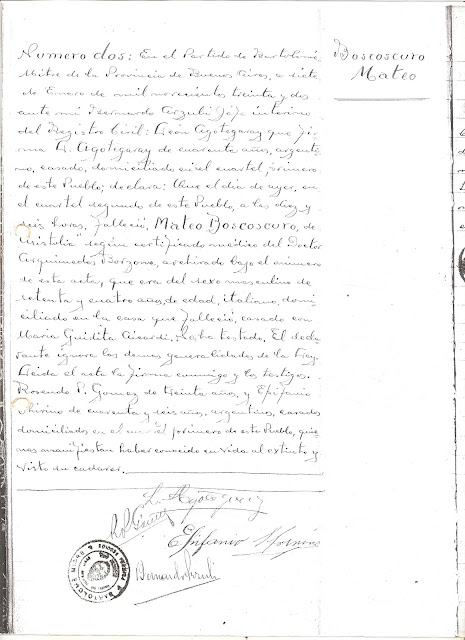 Numero dos: En el Partido de Bartolomé
Mitre de la Provincia de Buenos Aires, a siete
de Enero de mil novecientos treinta y dos
ante mi Bernardo Arzubi Jefe interino
del Registro Civil: León Agotegaray que fir-
ma L. Agotegaray de cuarenta años, argenti-
no, casado, domiciliado en el cuartel primero
de este Pueblo; declara: Que el dia de ayer, en
el cuartel segundo de este Pueblo, a las diez y
seis horas, falleció, Mateo Boscoscuro, de
segun certificado médico del Doctor
Arquimedes Borzone, archivado bajo el número
de esta acta, que era del sexo masculino de
setenta y cuatro años, de edad, italiano, domi-
ciliado en la casa que falleció, casado con
Maria Guidita testado. El decla-
rante ignora las demas generalidades de la Ley.
Leida el acta la firma conmigo y los testigos.
Rosendo P. Gomez de treinta años, y Epifanio
de cuarenta y seis años, argentinos, casados
domiciliados en el cuartel primero de este Pueblo, quie-
nes manifiestan haber conocido en vida al extinto y
visto su cadaver.
Boscoscuro
Mateo
L. Agotegaray
Epifanio
Bernardo Arzubi